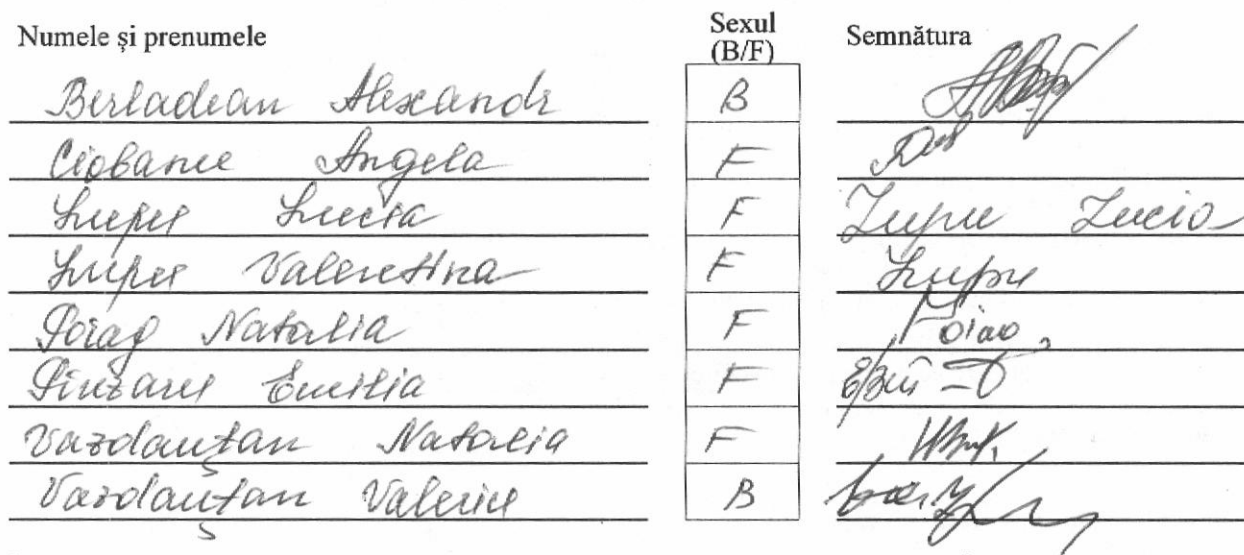 Numele și prenumele Sexul (B/F) Semnătura
Berladean Alexandr B
Ciobanu Angela F
Lupu Lucia F Lupu Lucia
Lupu Valentina F Lupu
Poiag Natalia F
Pinzaru Emilia F
Vazdauțan Natalia F
Vazdauțan Valeriu B